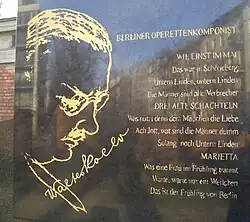 BERLINER OPERETTENKOMPONIST
WIE EINST IM MAI
Das war in Schöneberg
Untern Linden, untern Linden
Die Männer sind alle Verbrecher
DREI ALTE SCHACHTELN
Was nützt denn dem Mädchen die Liebe
Ach Jott, wat sind die Männer dumm
Solang noch Untern Linden
MARIETTA
Was eine Frau im Frühling träumt
Warte, warte nur ein Weilchen
Das ist der Frühling von Berlin
Walter Kollo